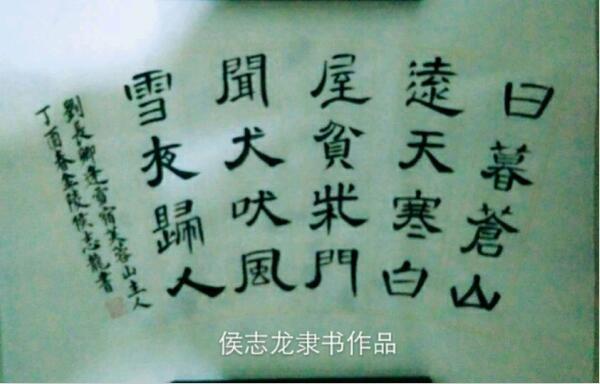 日暮蒼山
遠天寒白
屋貧柴門
聞犬吠風
雪夜歸人
劉長卿逢雪宿芙蓉山主人
丁酉春金陵侯志龍書
侯志龙隶书作品